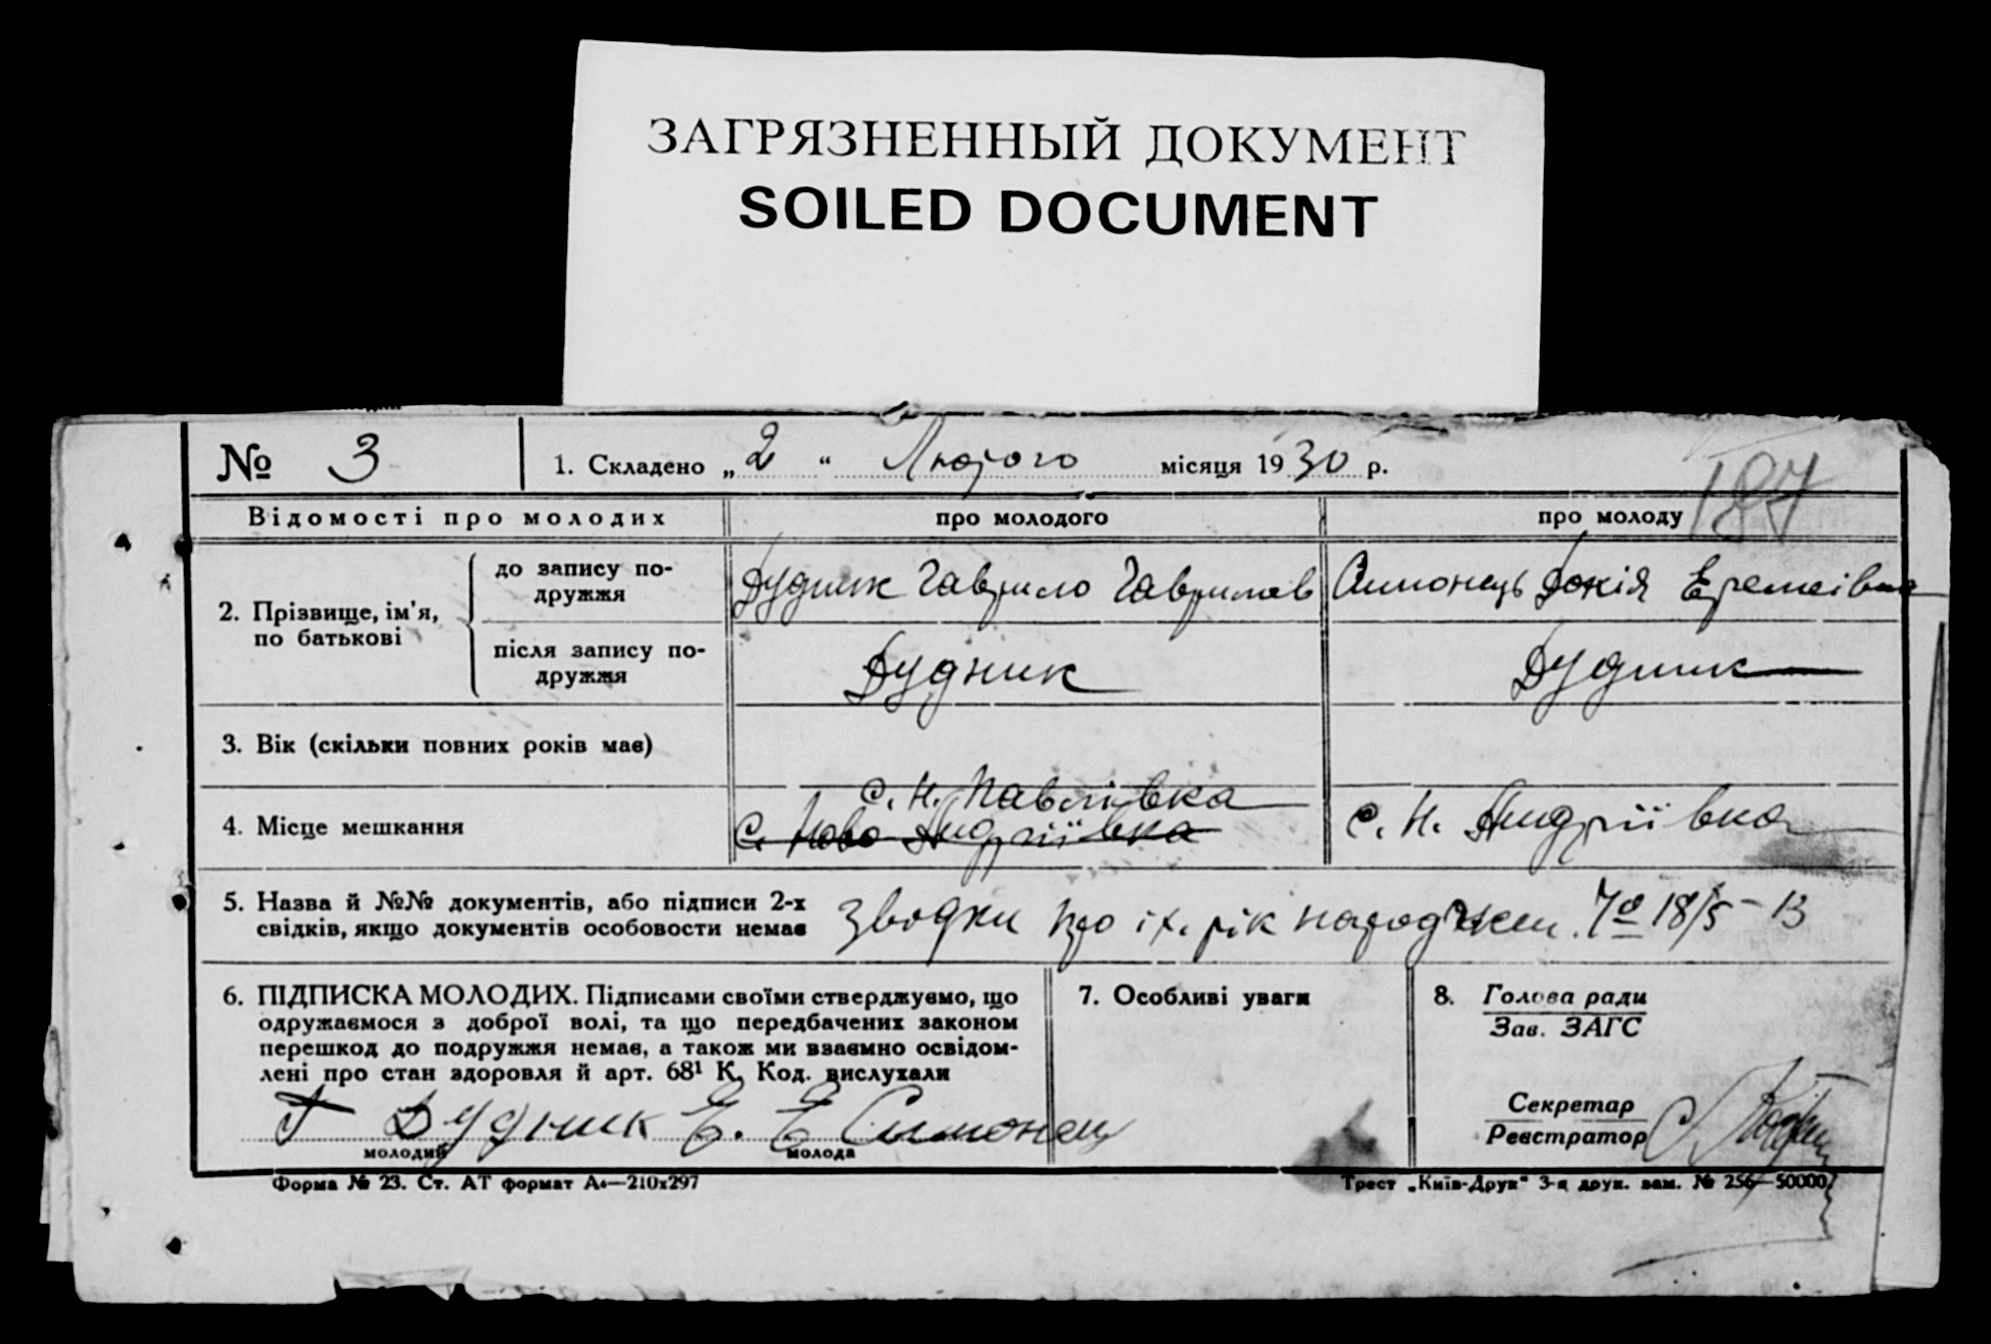 ЗАГРЯЗНЕННЫЙ ДОКУМЕНТ
SOILED DOCUMENT
№ 3
1. Складено „2“ Лютого місяця 1930 р.
187
Відомості про молодих
про молодого
про молоду
2. Прізвище, ім'я, по батькові
до запису по-
дружжя
Дудник Гаврило Гаврилов
Симонець Докія Еремеівна
після запису по-
дружжя
Дудник
Дудник
3. Вік (скільки повних років має)
4. Місце мешкання
с. Н. Павлівка
с. Ново Андріївка
с. Н. Андріївка
5. Назва й №№ документів, або підписи 2-х
свідків, якщо документів особовости немає
зводки про іх рік народжен. 18/5 - 13
6. ПІДПИСКА МОЛОДИХ. Підписами своїми стверджуємо, що
одружаємося з доброї волі, та що передбачених законом
перешкод до подружжя немає, а також ми взаємно освідом-
лені про стан здоровля й арт. 68¹ К. Код. вислухали
Г Дудник Е. Е Симонец
молодий
молода
7. Особливі уваги
8. Голова ради
Зав. ЗАГС
Секретар
Реєстратор
Форма № 23. Ст. АТ формат А₄—210х297
Трест „Київ-Друк" 3-я друк. зам. № 256—50000.